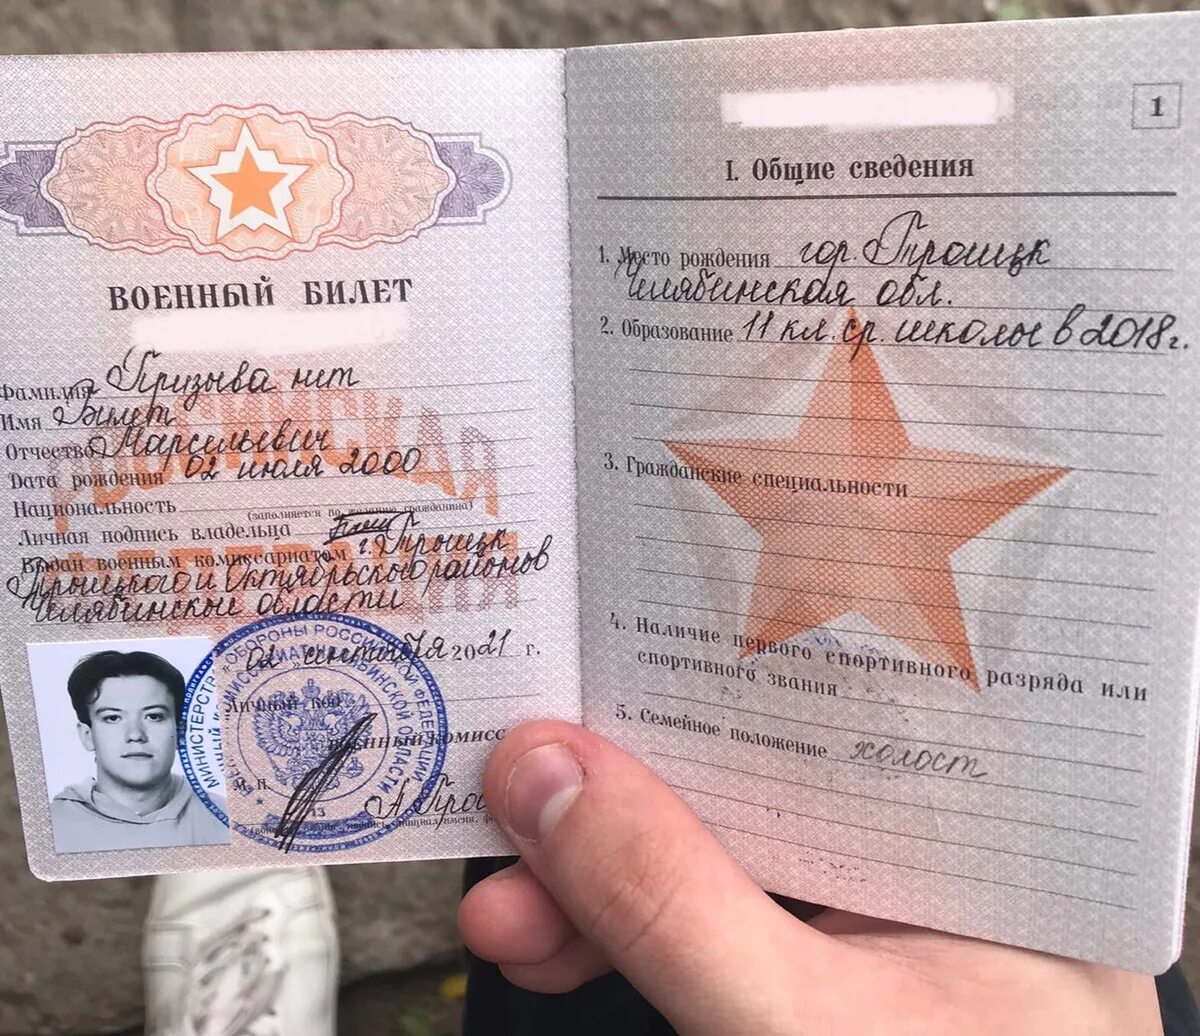 ВОЕННЫЙ БИЛЕТ
Фамилия Призыва нет
Имя Билет
Отчество Марсильевич
Дата рождения 02 июля 2000
Национальность
(заполняется по желанию гражданина)
Личная подпись владельца
Выдан военным комиссариатом г. Троицк
Троицкого и Октябрьского районов
Челябинской области
02 сентября 2021 г.
Личный код
Военный комисс
М. П.
А. Тро
1
I. Общие сведения
1. Место рождения гор. Троицк
Челябинская обл.
2. Образование 11 кл. ср. школы в 2018 г.
3. Гражданские специальности
4. Наличие первого спортивного разряда или
спортивного звания
5. Семейное положение холост